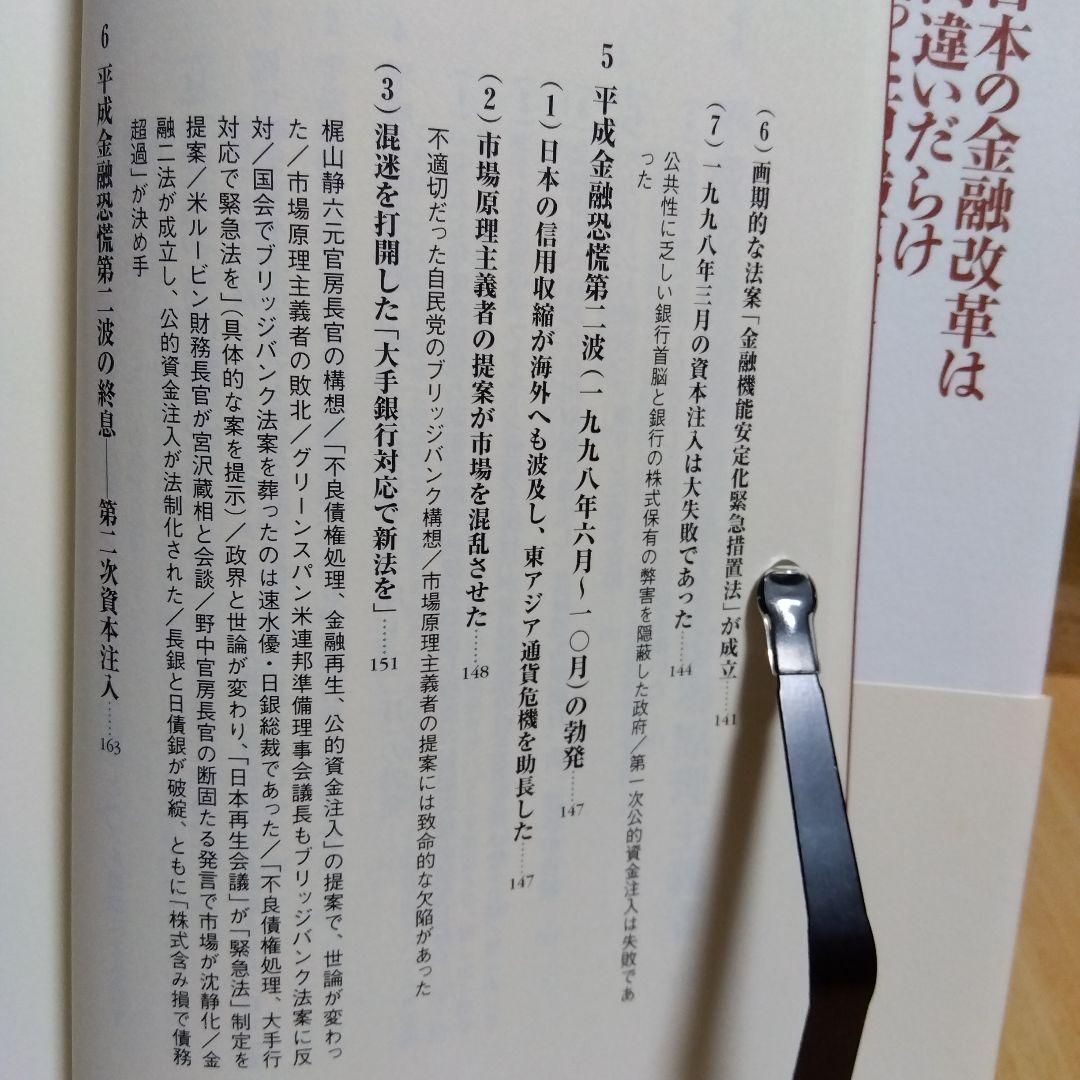 日本の金融改革は
間違いだらけ
(6) 画期的な法案「金融機能安定化緊急措置法」が成立……141
(7) 一九九八年三月の資本注入は大失敗であった……144
公共性に乏しい銀行首脳と銀行の株式保有の弊害を隠蔽した政府／第一次公的資金注入は失敗であ
った
5 平成金融恐慌第二波(一九九八年六月〜一〇月)の勃発……147
(1) 日本の信用収縮が海外へも波及し、東アジア通貨危機を助長した……147
(2) 市場原理主義者の提案が市場を混乱させた……148
不適切だった自民党のブリッジバンク構想／市場原理主義者の提案には致命的な欠陥があった
(3) 混迷を打開した「大手銀行対応で新法を」……151
梶山静六元官房長官の構想／「不良債権処理、金融再生、公的資金注入」の提案で、世論が変わっ
た／市場原理主義者の敗北／グリーンスパン米連邦準備理事会議長もブリッジバンク法案に反
対／国会でブリッジバンク法案を葬ったのは速水優・日銀総裁であった／「不良債権処理、大手行
対応で緊急法を」(具体的な案を提示)／政界と世論が変わり、「日本再生会議」が「緊急法」制定を
提案／米ルービン財務長官が宮沢蔵相と会談／野中官房長官の断固たる発言で市場が沈静化／金
融二法が成立し、公的資金注入が法制化された／長銀と日債銀が破綻、ともに「株式含み損で債務
超過」が決め手
6 平成金融恐慌第二波の終息――第二次資本注入……163